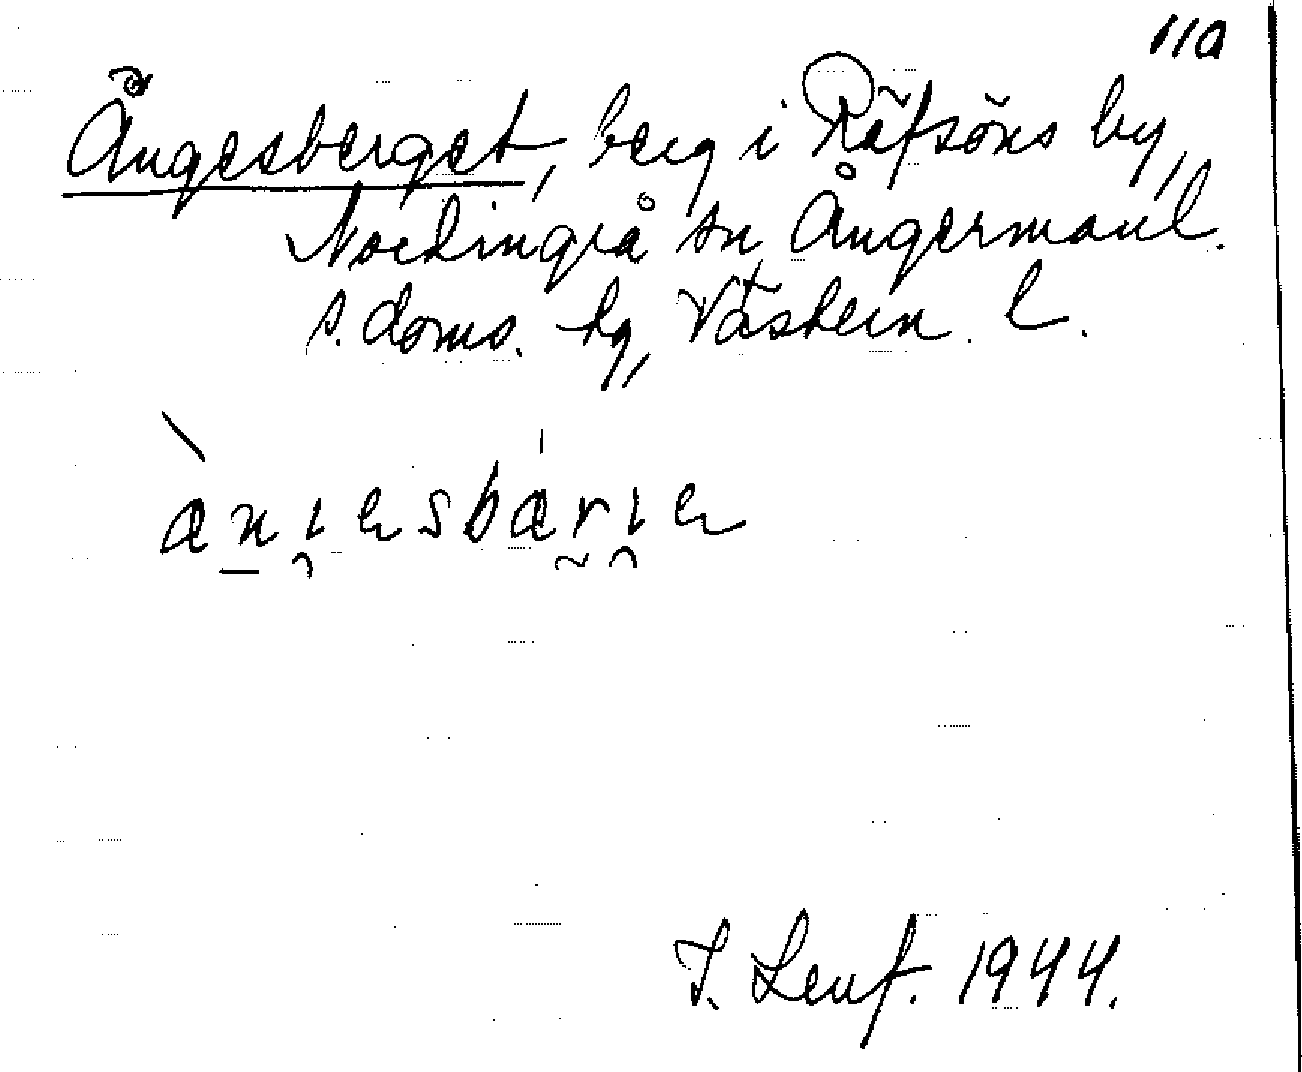 11a
Ängesberget, berg i Räfsöns by,
Nordingrå sn, Ångermanl.
s. doms. hg, Västern. l.
änɪesbärɪe
J. Leuf. 1944.